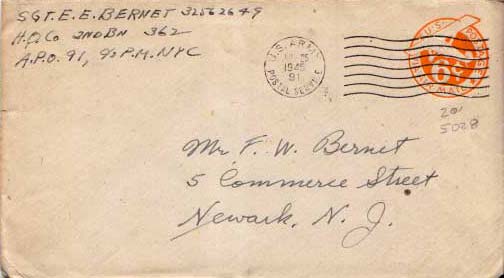 SGT. E. E. BERNET 32562649
HQ Co 2ND BN 362
A.P.O. 91, % P.M. NYC
U.S. ARMY
1945
91
POSTAL SERVICE
U.S. POSTAGE
6¢
VIA AIR MAIL
201
5028
Mr F. W. Bernet
5 Commerce Street
Newark, N. J.